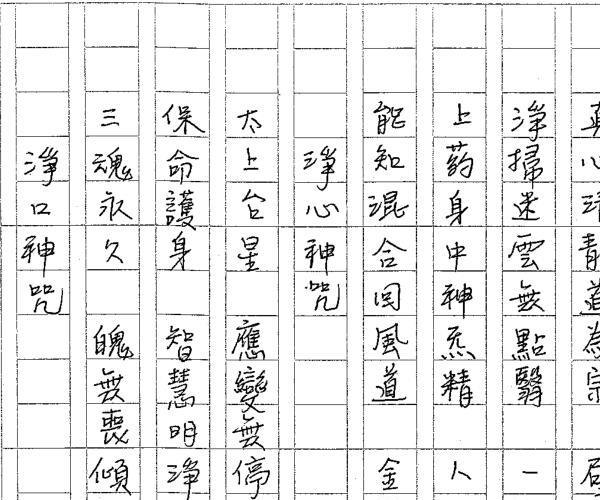 真心清靜道為宗
淨掃迷雲無點翳 一
上藥身中神炁精 人
能知混合回風道 金
淨心神咒
太上台星 應變無停
保命護身 智慧明淨
三魂永久 魄無喪傾
淨口神咒